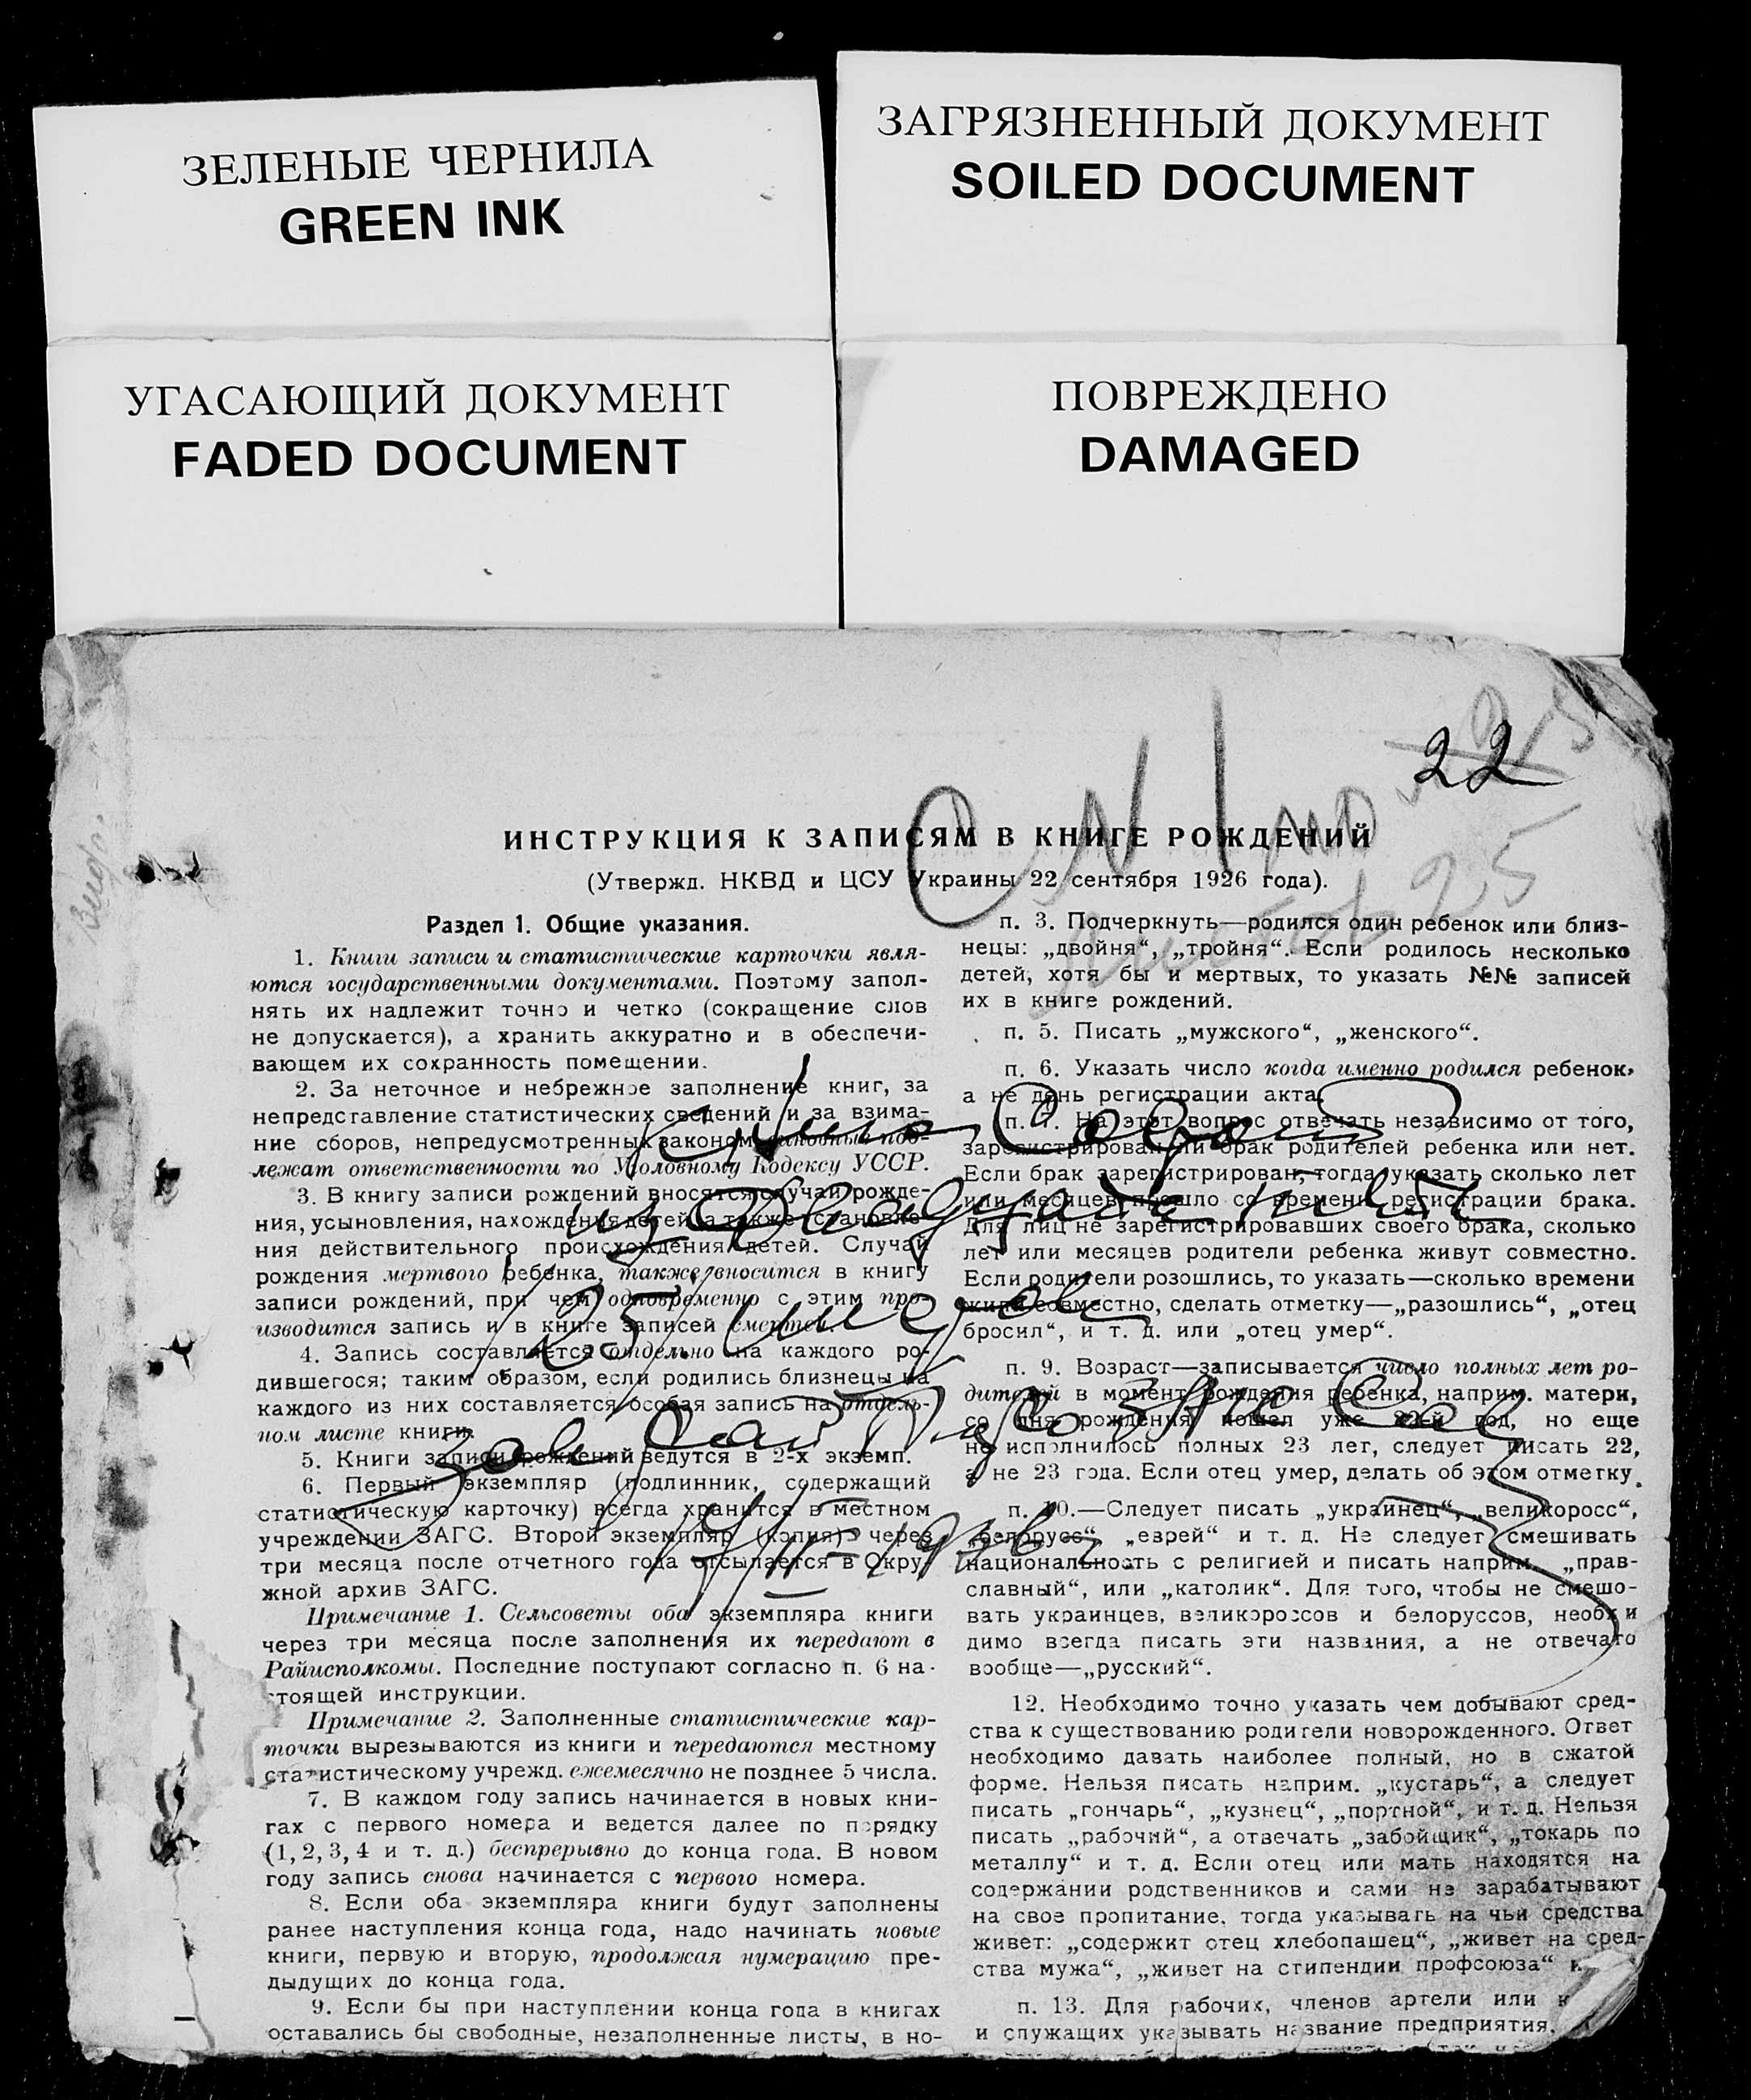 ЗЕЛЕНЫЕ ЧЕРНИЛА
GREEN INK
ЗАГРЯЗНЕННЫЙ ДОКУМЕНТ
SOILED DOCUMENT
УГАСАЮЩИЙ ДОКУМЕНТ
FADED DOCUMENT
ПОВРЕЖДЕНО
DAMAGED
22
ИНСТРУКЦИЯ К ЗАПИСЯМ В КНИГЕ РОЖДЕНИЙ
(Утвержд. НКВД и ЦСУ Украины 22 сентября 1926 года).
Раздел 1. Общие указания.
1. Книги записи и статистические карточки явля-
ются государственными документами. Поэтому запол-
нять их надлежит точно и четко (сокращение слов
не допускается), а хранить аккуратно и в обеспечи-
вающем их сохранность помещении.
2. За неточное и небрежное заполнение книг, за
непредставление статистических сведений и за взима-
ние сборов, непредусмотренных законом, виновные под-
лежат ответственности по Уголовному Кодексу УССР.
3. В книгу записи рождений вносятся случаи рожде-
ния, усыновления, нахождения детей, а также становле-
ния действительного происхождения детей. Случай
рождения мертвого ребенка, также вносится в книгу
записи рождений, при чем одновременно с этим про-
изводится запись и в книге записей смертей.
4. Запись составляется отдельно на каждого ро-
дившегося; таким образом, если родились близнецы на
каждого из них составляется особая запись на отдель-
ном листе книги.
5. Книги записи рождений ведутся в 2-х экземп.
6. Первый экземпляр (подлинник, содержащий
статистическую карточку) всегда хранится в местном
учреждении ЗАГС. Второй экземпляр (копия) через
три месяца после отчетного года отсылается в Окру-
жной архив ЗАГС.
Примечание 1. Сельсоветы оба экземпляра книги
через три месяца после заполнения их передают в
Райисполкомы. Последние поступают согласно п. 6 на-
стоящей инструкции.
Примечание 2. Заполненные статистические кар-
точки вырезываются из книги и передаются местному
статистическому учрежд. ежемесячно не позднее 5 числа.
7. В каждом году запись начинается в новых кни-
гах с первого номера и ведется далее по порядку
(1, 2, 3, 4 и т. д.) беспрерывно до конца года. В новом
году запись снова начинается с первого номера.
8. Если оба экземпляра книги будут заполнены
ранее наступления конца года, надо начинать новые
книги, первую и вторую, продолжая нумерацию пре-
дыдущих до конца года.
9. Если бы при наступлении конца года в книгах
оставались бы свободные, незаполненные листы, в но-
п. 3. Подчеркнуть—родился один ребенок или близ-
нецы: „двойня“, „тройня“. Если родилось несколько
детей, хотя бы и мертвых, то указать №№ записей
их в книге рождений.
п. 5. Писать „мужского“, „женского“.
п. 6. Указать число когда именно родился ребенок,
а не день регистрации акта.
п. 7. На этот вопрос отвечать независимо от того,
зарегистрирован ли брак родителей ребенка или нет.
Если брак зарегистрирован, тогда указать сколько лет
или месяцев прошло со времени регистрации брака.
Для лиц не зарегистрировавших своего брака, сколько
лет или месяцев родители ребенка живут совместно.
Если родители розошлись, то указать—сколько времени
жили совместно, сделать отметку—„разошлись“, „отец
бросил“, и т. д. или „отец умер“.
п. 9. Возраст—записывается число полных лет ро-
дителей в момент рождения ребенка, наприм. матери,
со дня рождения пошел уже 22-й год, но еще
не исполнилось полных 23 лет, следует писать 22,
а не 23 года. Если отец умер, делать об этом отметку.
п. 10.—Следует писать „украинец“, „великоросс“,
„белорусс“, „еврей“ и т. д. Не следует смешивать
национальность с религией и писать наприм. „прав-
славный“, или „католик“. Для того, чтобы не смешо-
вать украинцев, великороссов и белоруссов, необх и
димо всегда писать эти названия, а не отвечато
вообще—„русский“.
12. Необходимо точно указать чем добывают сред-
ства к существованию родители новорожденного. Ответ
необходимо давать наиболее полный, но в сжатой
форме. Нельзя писать наприм. „кустарь“, а следует
писать „гончарь“, „кузнец“, „портной“, и т. д. Нельзя
писать „рабочий“, а отвечать „забойщик“, „токарь по
металлу“ и т. д. Если отец или мать находятся на
содержании родственников и сами не зарабатывают
на свое пропитание, тогда указывать на чьи средства
живет: „содержит отец хлебопашец“, „живет на сред-
ства мужа“, „живет на стипендии профсоюза“ и
п. 13. Для рабочих, членов артели или к
и служащих указывать название предприятия,